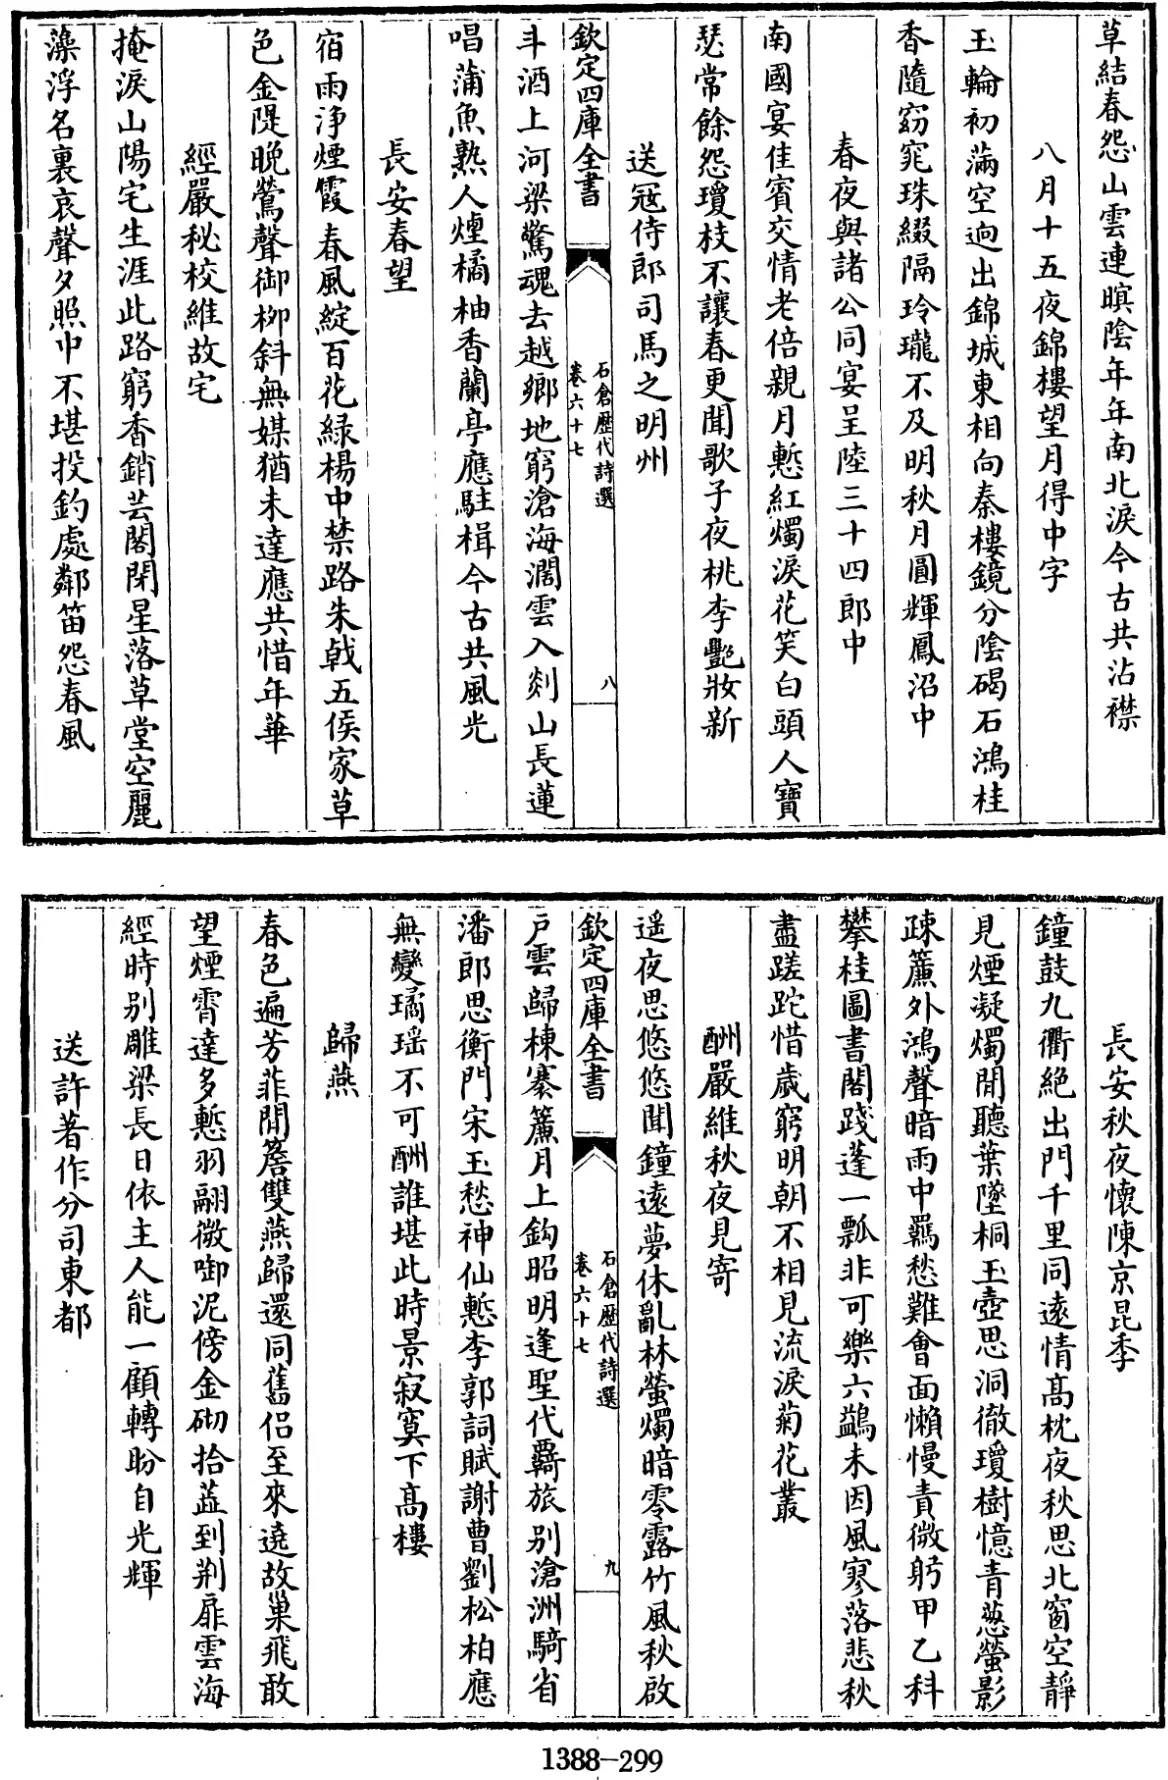 草結春怨山雲連暝陰年年南北淚今古共沾襟
八月十五夜錦樓望月得中字
玉輪初滿空迥出錦城東相向秦樓鏡分陰碣石鴻桂
香隨窈窕珠綴隔玲瓏不及明秋月圓輝鳳沼中
春夜與諸公同宴呈陸三十四郎中
南國宴佳賓交情老倍親月慙紅燭淚花笑白頭人寶
瑟常餘怨瓊枝不讓春更聞歌子夜桃李艷妝新
送冦侍郎司馬之明州
欽定四庫全書
石倉歷代詩選
卷六十七
八
斗酒上河梁驚魂去越鄉地窮滄海濶雲入剡山長蓮
唱蒲魚熟人煙橘柚香蘭亭應駐楫今古共風光
長安春望
宿雨淨煙霞春風綻百花綠楊中禁路朱戟五侯家草
色金隄晚鶯聲御柳斜無媒猶未達應共惜年華
經嚴秘校維故宅
掩淚山陽宅生涯此路窮香銷芸閣閉星落草堂空麗
藻浮名裏哀聲夕照中不堪投釣處鄰笛怨春風
長安秋夜懷陳京昆季
鐘鼓九衢絶出門千里同遠情髙枕夜秋思北窗空靜
見煙凝燭閒聽葉墜桐玉壺思洞徹瓊樹憶青葱螢影
疎簾外鴻聲暗雨中羇愁難會面懶慢責微躬甲乙科
攀桂圖書閣踐蓬一瓢非可樂六鷁未因風寥落悲秋
盡蹉跎惜歳窮明朝不相見流淚菊花叢
酬嚴維秋夜見寄
遥夜思悠悠聞鐘遠夢休亂林螢燭暗零露竹風秋啟
欽定四庫全書
石倉歷代詩選
卷六十七
九
戶雲歸棟褰簾月上鈎昭明逢聖代覊旅別滄洲騎省
潘郎思衡門宋玉愁神仙慙李郭詞賦謝曹劉松柏應
無變璚瑶不可酬誰堪此時景寂寞下髙樓
歸燕
春色遍芳菲閒簷雙燕歸還同舊侶至來遶故巢飛敢
望煙霄達多慙羽翮微啣泥傍金砌拾蕋到荆扉雲海
經時別雕梁長日依主人能一顧轉盼自光輝
送許著作分司東都
1388-299